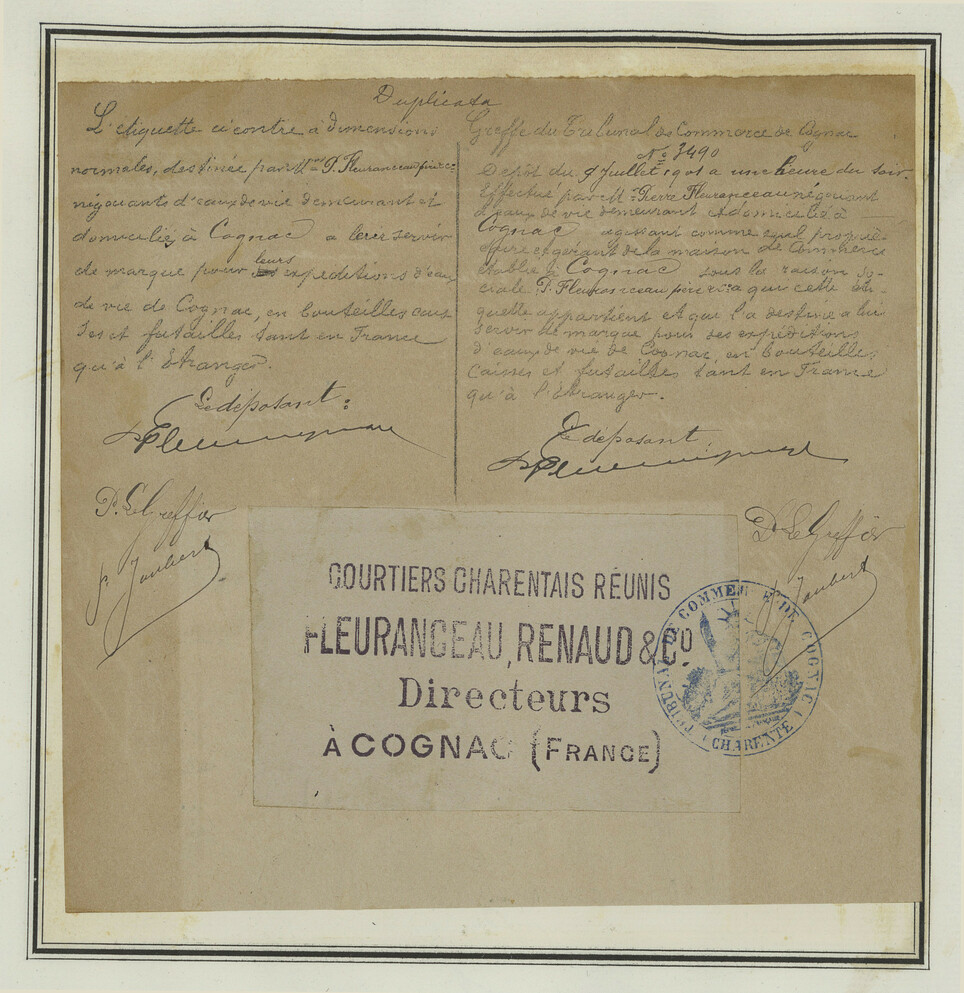 Duplicata
L'étiquette ci contre à dimensions
normales, destinée par M. P. Fleuranceau père & Cie
négociants d'eaux de vie demeurant et
domiciliés à Cognac a leur servir
de marque pour leurs expéditions d'eau
de vie de Cognac, en bouteilles cais
ses et futailles tant en France
qu'à l'Etranger.
Le déposant :
P. Le Greffier
p. Joubert
Greffe du Tribunal de Commerce de Cognac
No 3490
Dépôt du 9 Juillet 1901 a une heure du soir.
Effectué par M. Pierre Fleuranceau négociant
d'eaux de vie demeurant et domicilié à
Cognac agissant comme seul proprié-
taire et gérant de la maison de Commerce
établie à Cognac sous la raison so-
ciale P. Fleuranceau père & Cie a qui cette éti-
quette appartient et qui l'a destinée a lui
servir de marque pour ses expéditions
d'eaux de vie de Cognac, en bouteilles,
caisses et futailles tant en France
qu'à l'Etranger.
Le déposant.
P. Le Greffier
p. Joubert
COURTIERS CHARENTAIS RÉUNIS
FLEURANCEAU, RENAUD & CO.
Directeurs
À COGNAC (FRANCE)
TRIBUNAL DE COMMERCE DE COGNAC (CHARENTE)